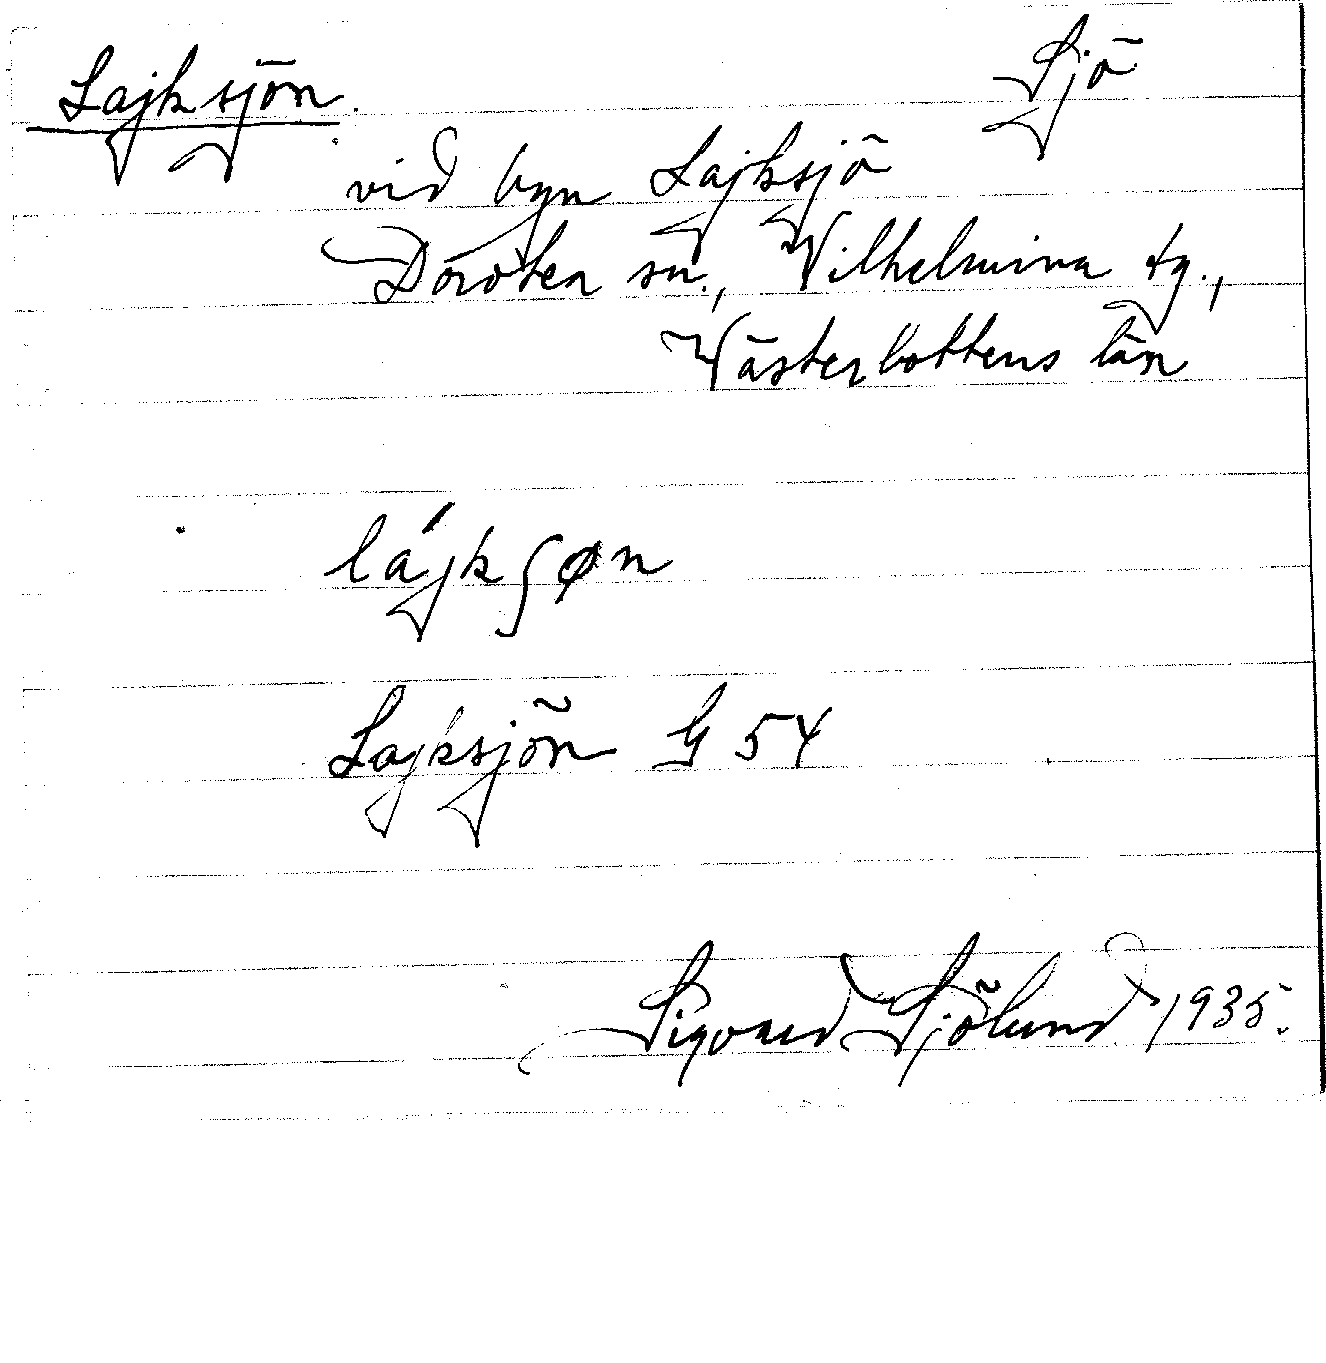 Lajksjön. Sjö
vid byn Lajksjö
Dorotea sn., Vilhelmina tg.,
Västerbottens län
lájkʃøn
Lajksjön G 54
Sigvard Sjölund 1935.